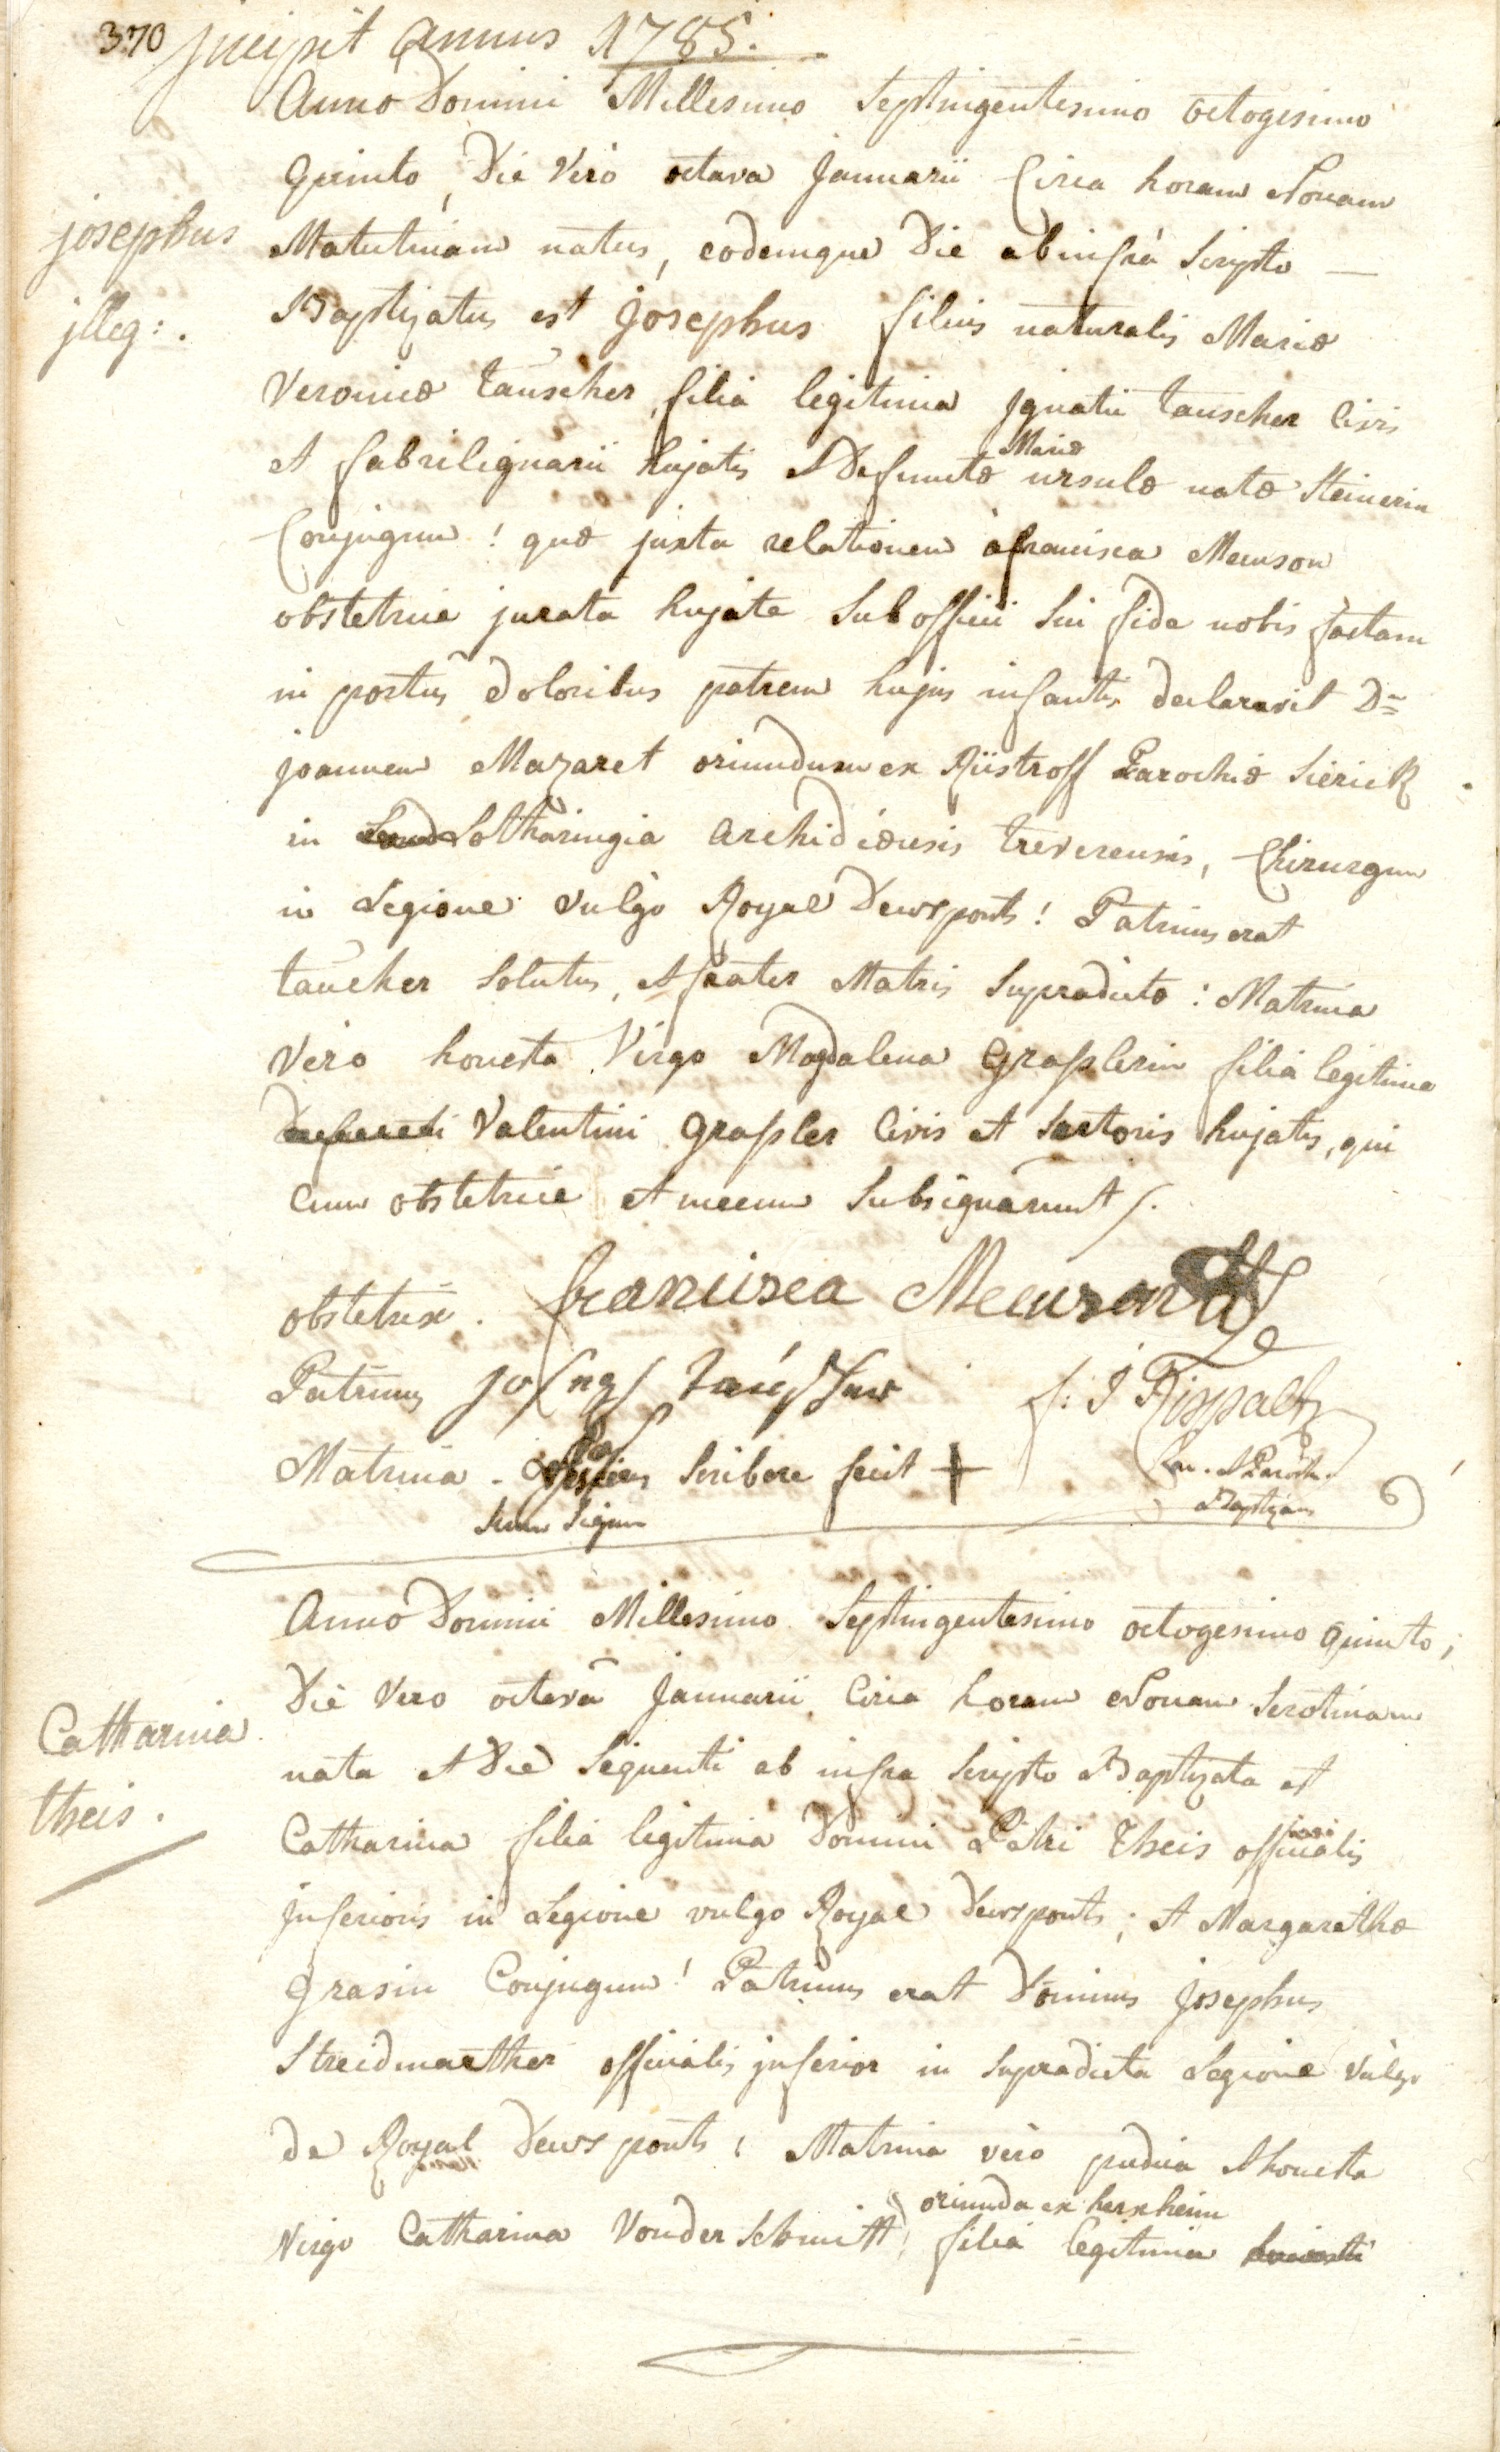 370 jncipit annus 1785.
Anno Domini Millesimo Septingentesimo octogesimo
quinto, Die Verò octava Januarii Circa horam Nonam
josephus
Matutinam natus, eodemque Die ab infrà Scripto —
jlleg: .
Baptizatus est josephus filius naturalis Mariæ
Veronicæ taùscher, filia legitima jgnatii tauscher Civis
et fabrilignarii hujatis et Defunctæ Mariæ ursulæ natæ Steinerin
Conjugum ! quæ juxta relationem à francisca Meuson
obstetrice jurata hujate Sub officii Sui fide nobis factam
in partûs doloribus patrem hujus infantis declaravit D=
joannem Mazaret oriundum ex Rüstroff Parochiæ Sierick
in Lotharingia archidiœcesis treverensis, Chirurgum
in Legione vulgò Royal Deuxponts ! Patrinus erat
taücher Solutus, et frater Matris Supradictæ : Matrina
Verò honesta Virgo Magdalena Grasslerin filia legitima
Defuncti Valentini Grassler Civis et Sartoris hujatis, qui
Cum obstetrice et mecum Subsignarunt /.
obstetrix . francisca Meuson
Patrinus
Matrina - Scribere fecit +
Suum Signum
Baptizans
Anno Domini Millesimo Septingentesimo octogesimo quinto ;
Die Vero octavâ Januarii Circa horam Nonam Serotinam
Catharina
nata et Die Sequenti ab infra Scripto Baptizata est
theis .
Catharina filia legitima Domini Petri Theis officialis
jnferioris in Legione vulgo Royal Deuxponts ; et Margarethæ
Grasin Conjugum ! Patrinus erat Dominus josephus
Streidmatther officialis jnferior in Supradicta Legione vulgo
de Royal Deuxponts ; Matrina verò pudica et honesta
oriunda ex herxheim
Virgo Catharina Vonderschmitt, filia legitima